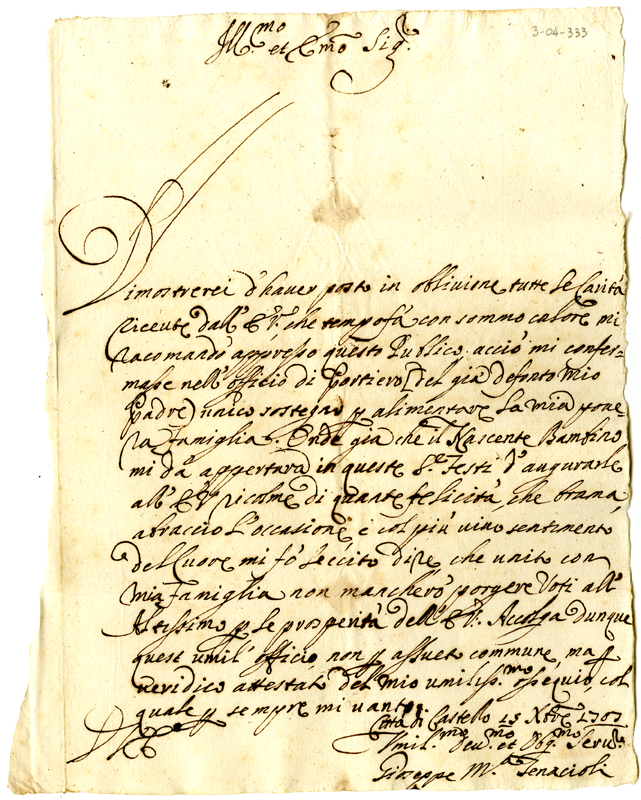 3-04-333
Ill.mo et Ecc.mo Sig.re
Dimostrerei d'haver posto in oblivione tutte le Carità
riceute dall' E.V. che tempo fà con sommo calore mi
racomandò appresso questo Publico, acciò mi confer-
masse nell'officio di Portiero (del già defonto mio
Padre) unico sostegno p alimentare la mia pove
ra famiglia. Onde già che il Nascente Bambino
mi dà appertura in queste S.te Feste d'augurarle
all' E.V. ricolme di quante felicità, che brama,
abraccio l'occasione, e col più vivo sentimento
del Cuore mi fò leccito dirle, che unito con
mia famiglia non mancherò porgere Voti all'
Altissimo p le prosperità dell' E.V. Accolga dunque
quest' umil' officio non p assueto commune, ma p
veridico attestato del mio umiliss.mo ossequio, col
quale p sempre mi vanto
D. E.V.
Città di Castello 15 Xbre 1707
Umil.mo Dev.mo et Obg.mo Serv.re
Gioseppe M.a Tenacioli